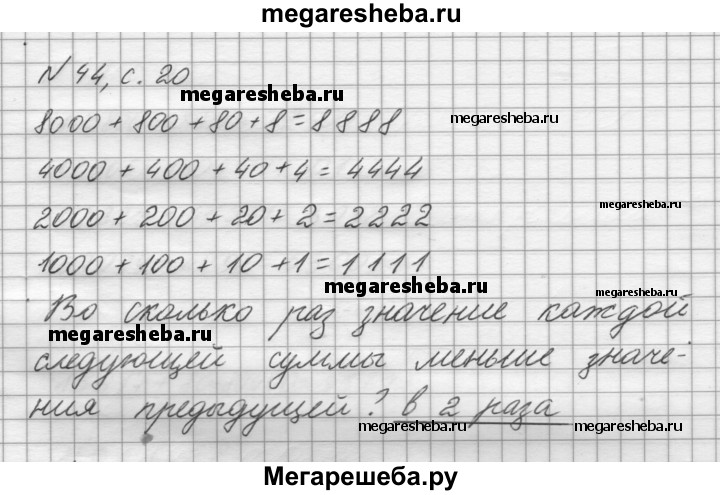 megaresheba.ru
№ 44, с. 20
megaresheba.ru
8000 + 800 + 80 + 8 = 8888
megaresheba.ru
4000 + 400 + 40 + 4 = 4444
megaresheba.ru
2000 + 200 + 20 + 2 = 2222
1000 + 100 + 10 + 1 = 1111
megaresheba.ru
megaresheba.ru
Во сколько раз значение каждой
megaresheba.ru
следующей суммы меньше значе-
ния предыдущей? в 2 раза
megaresheba.ru
megaresheba.ru
Мегарешеба.ру